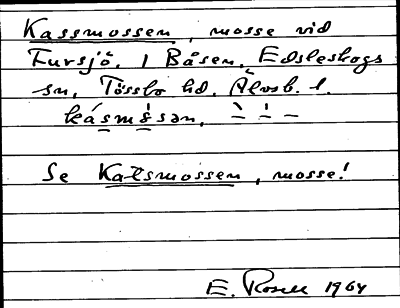 Kassmossen, mosse vid
Fursjö. 1 Båsen, Edsleskogs
sn, Tössbo hd, Älvsb. l.
kásmåsən,
Se Katsmossen, mosse!
E. Rosell 1964